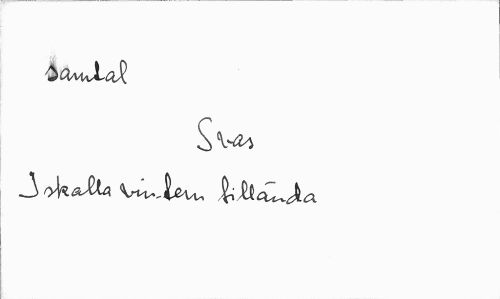 samtal
Svas
Iskalla vintern tillända